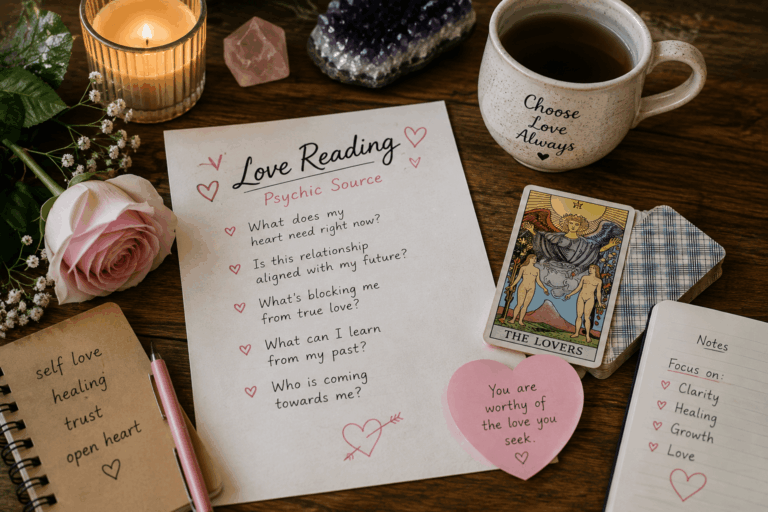 Love Reading
Psychic Source
What does my
heart need right now?
Is this relationship
aligned with my future?
What's blocking me
from true love?
What can I learn
from my past?
Who is coming
towards me?
Choose
Love
Always
VI
THE LOVERS
You are
worthy of
the love you
seek.
self love
healing
trust
open heart
Notes
Focus on:
Clarity
Healing
Growth
Love